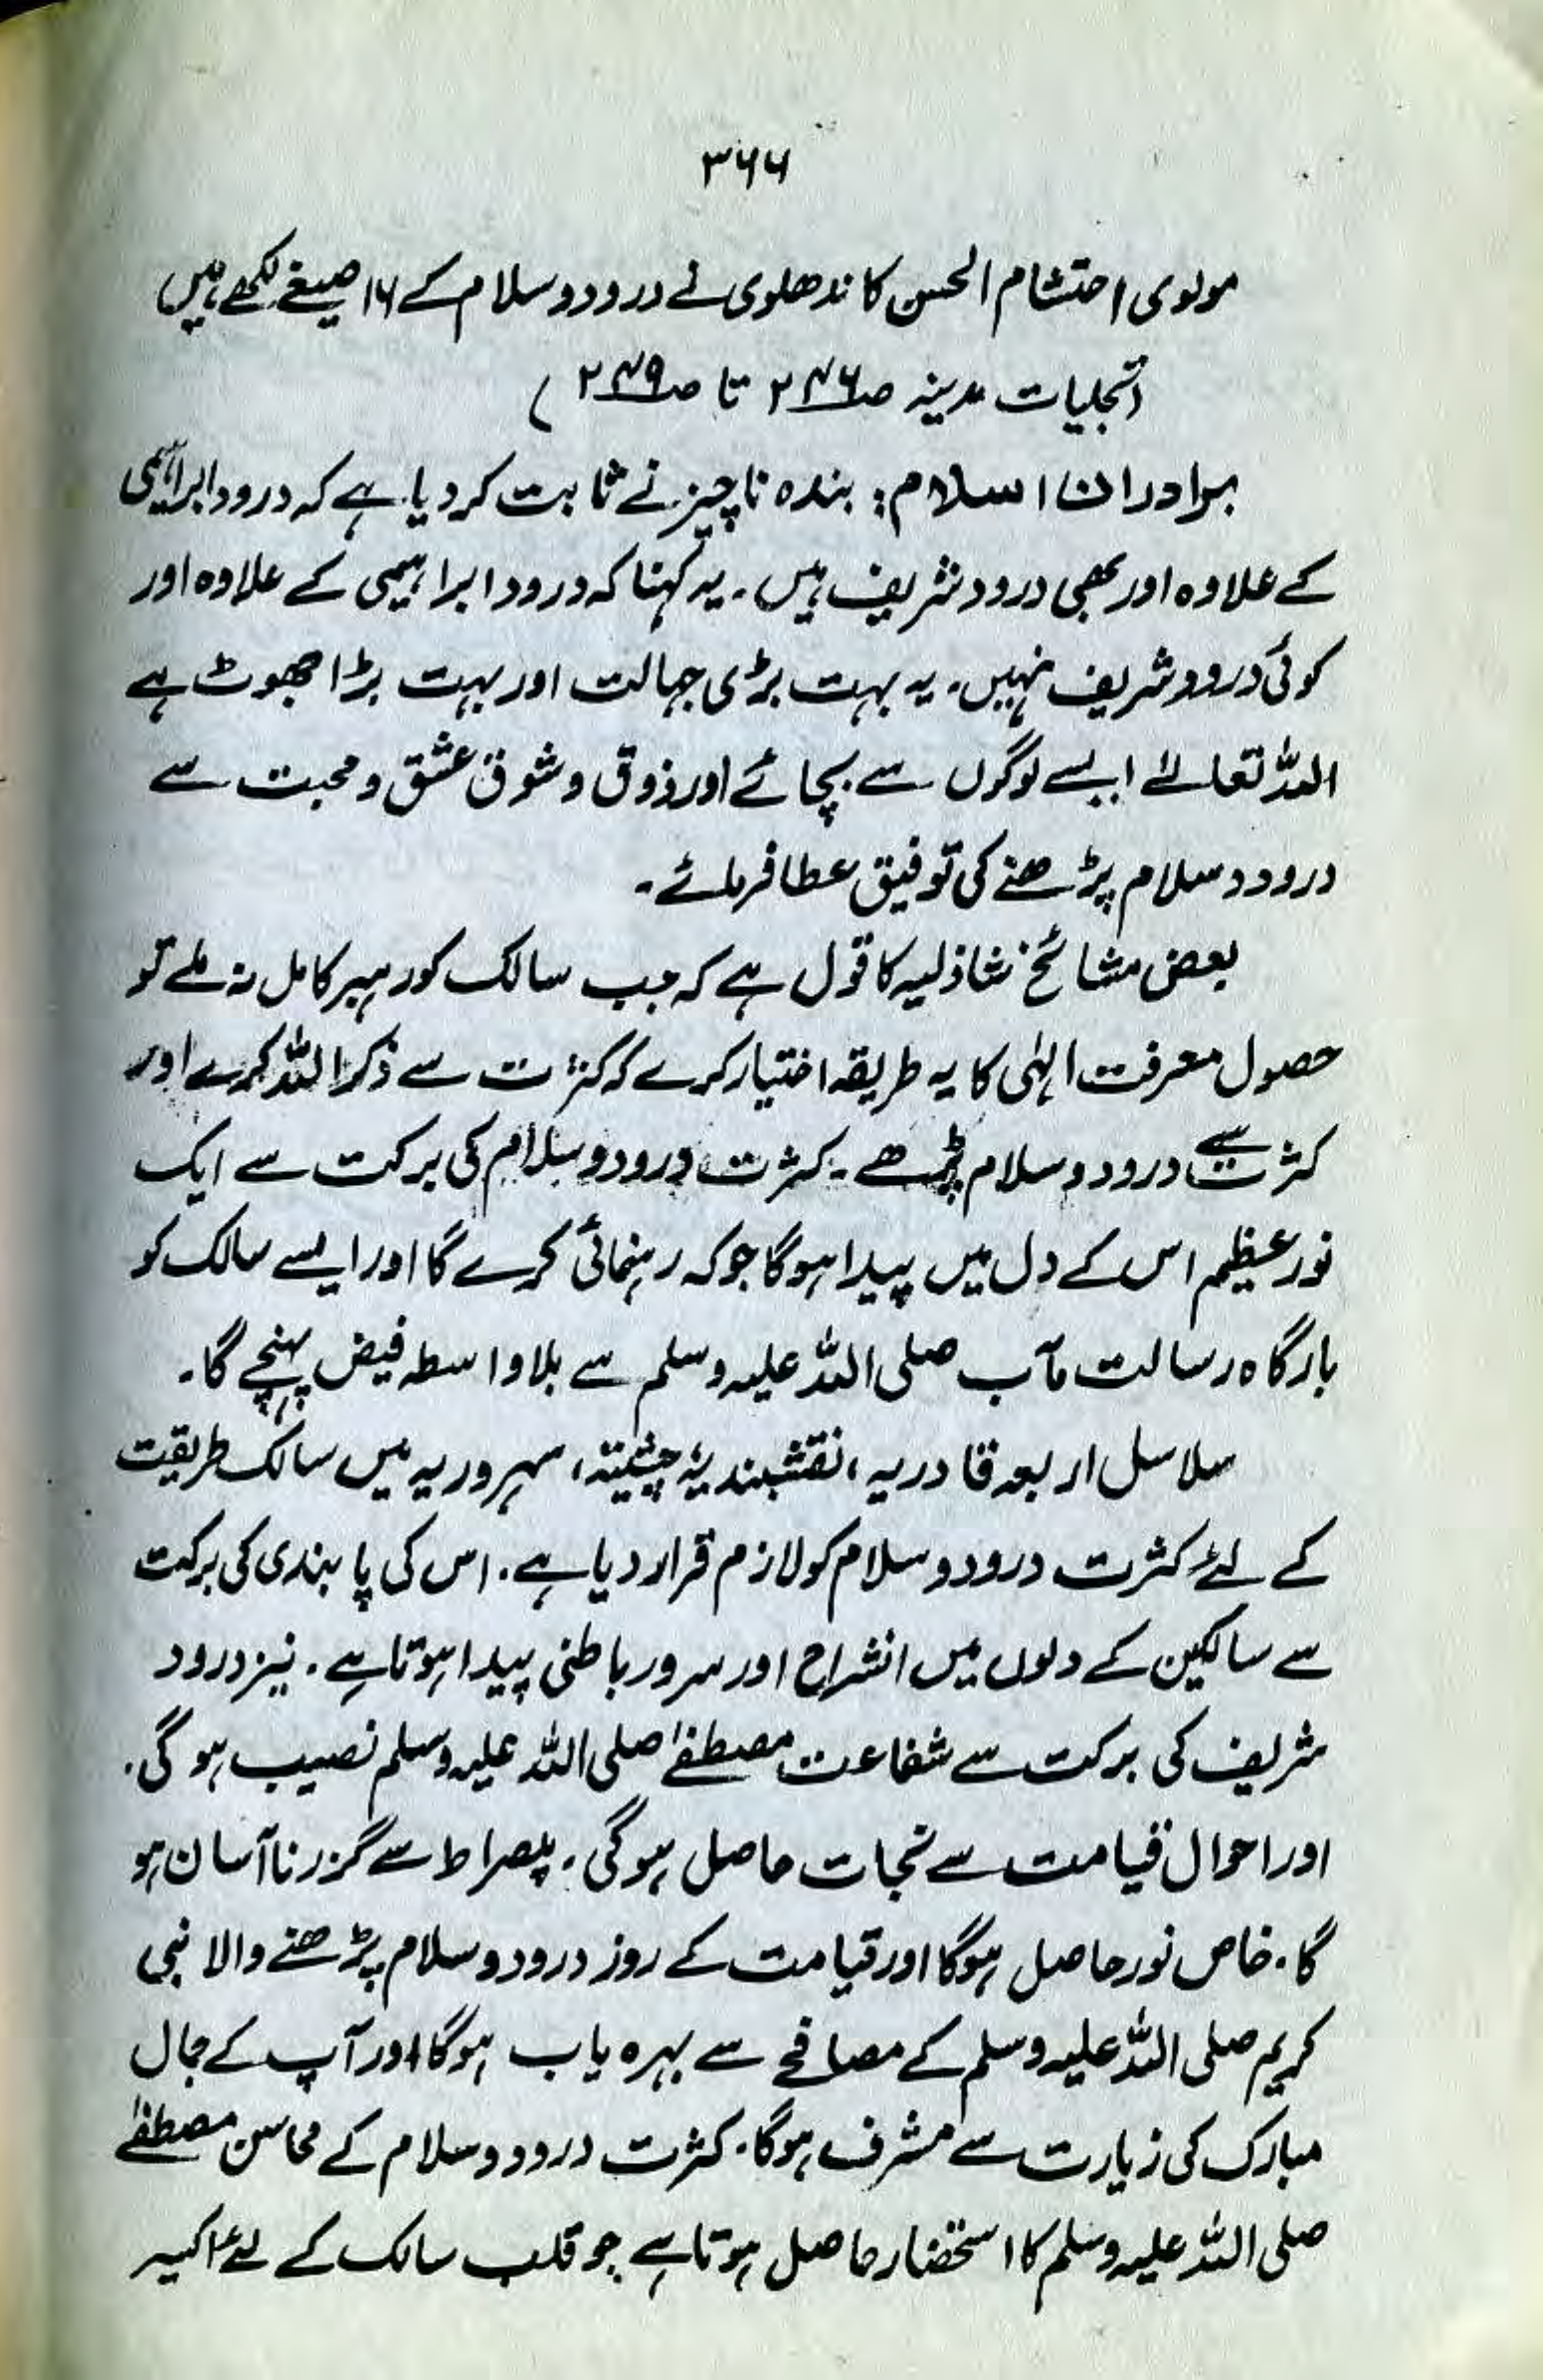 ۳۶۶
مولوی احتشام الحسن کاندھلوی نے درود و سلام کے ۱۶ صیغے لکھے ہیں
(تجلیات مدینہ صـ۲۴۶ تا صـ۲۴۹)
برادران اسلام: بندہ ناچیز نے ثابت کر دیا ہے کہ درود ابراہیمی
کے علاوہ اور بھی درود شریف ہیں۔ یہ کہنا کہ درود ابراہیمی کے علاوہ اور
کوئی درود شریف نہیں۔ یہ بہت بڑی جہالت اور بہت بڑا جھوٹ ہے
اللہ تعالےٰ ایسے لوگوں سے بچائے اور ذوق و شوق عشق و محبت سے
درود و سلام پڑھنے کی توفیق عطا فرمائے۔
بعض مشائخ شاذلیہ کا قول ہے کہ جب سالک کو رہبر کامل نہ ملے تو
حصول معرفت الہٰی کا یہ طریقہ اختیار کرے کہ کثرت سے ذکر اللہ کرے اور
کثرت سے درود و سلام پڑھے۔ کثرت درود و سلام کی برکت سے ایک
نور عظیم اس کے دل میں پیدا ہو گا جو کہ رہنمائی کرے گا اور ایسے سالک کو
بارگاہ رسالت مآب صلی اللہ علیہ وسلم سے بلا واسطہ فیض پہنچے گا۔
سلاسل اربعہ قادریہ، نقشبندیہ، چشتیہ، سہروریہ میں سالک طریقت
کے لئے کثرت درود و سلام کو لازم قرار دیا ہے۔ اس کی پابندی کی برکت
سے سالکین کے دلوں میں انشراح اور سرور باطنی پیدا ہوتا ہے۔ نیز درود
شریف کی برکت سے شفاعت مصطفےٰ صلی اللہ علیہ وسلم نصیب ہو گی۔
اور احوال قیامت سے نجات حاصل ہو گی۔ پلصراط سے گزرنا آسان ہو
گا۔ خاص نور حاصل ہو گا اور قیامت کے روز درود و سلام پڑھنے والا نبی
کریم صلی اللہ علیہ وسلم کے مصافحے سے بہرہ یاب ہو گا اور آپ کے جمال
مبارک کی زیارت سے مشرف ہو گا۔ کثرت درود و سلام کے محاسن مصطفےٰ
صلی اللہ علیہ وسلم کا استحضار حاصل ہوتا ہے جو قلب سالک کے لئے اکسیر